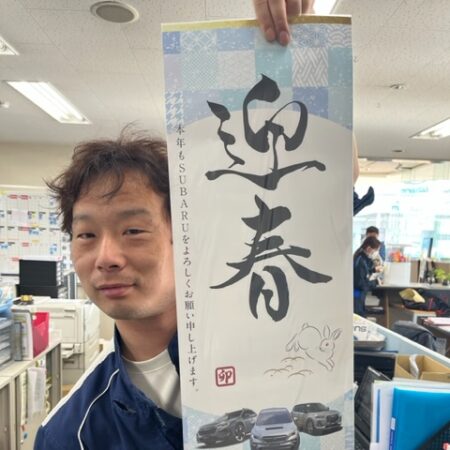 迎春
本年もSUBARUをよろしくお願い申し上げます。
卯